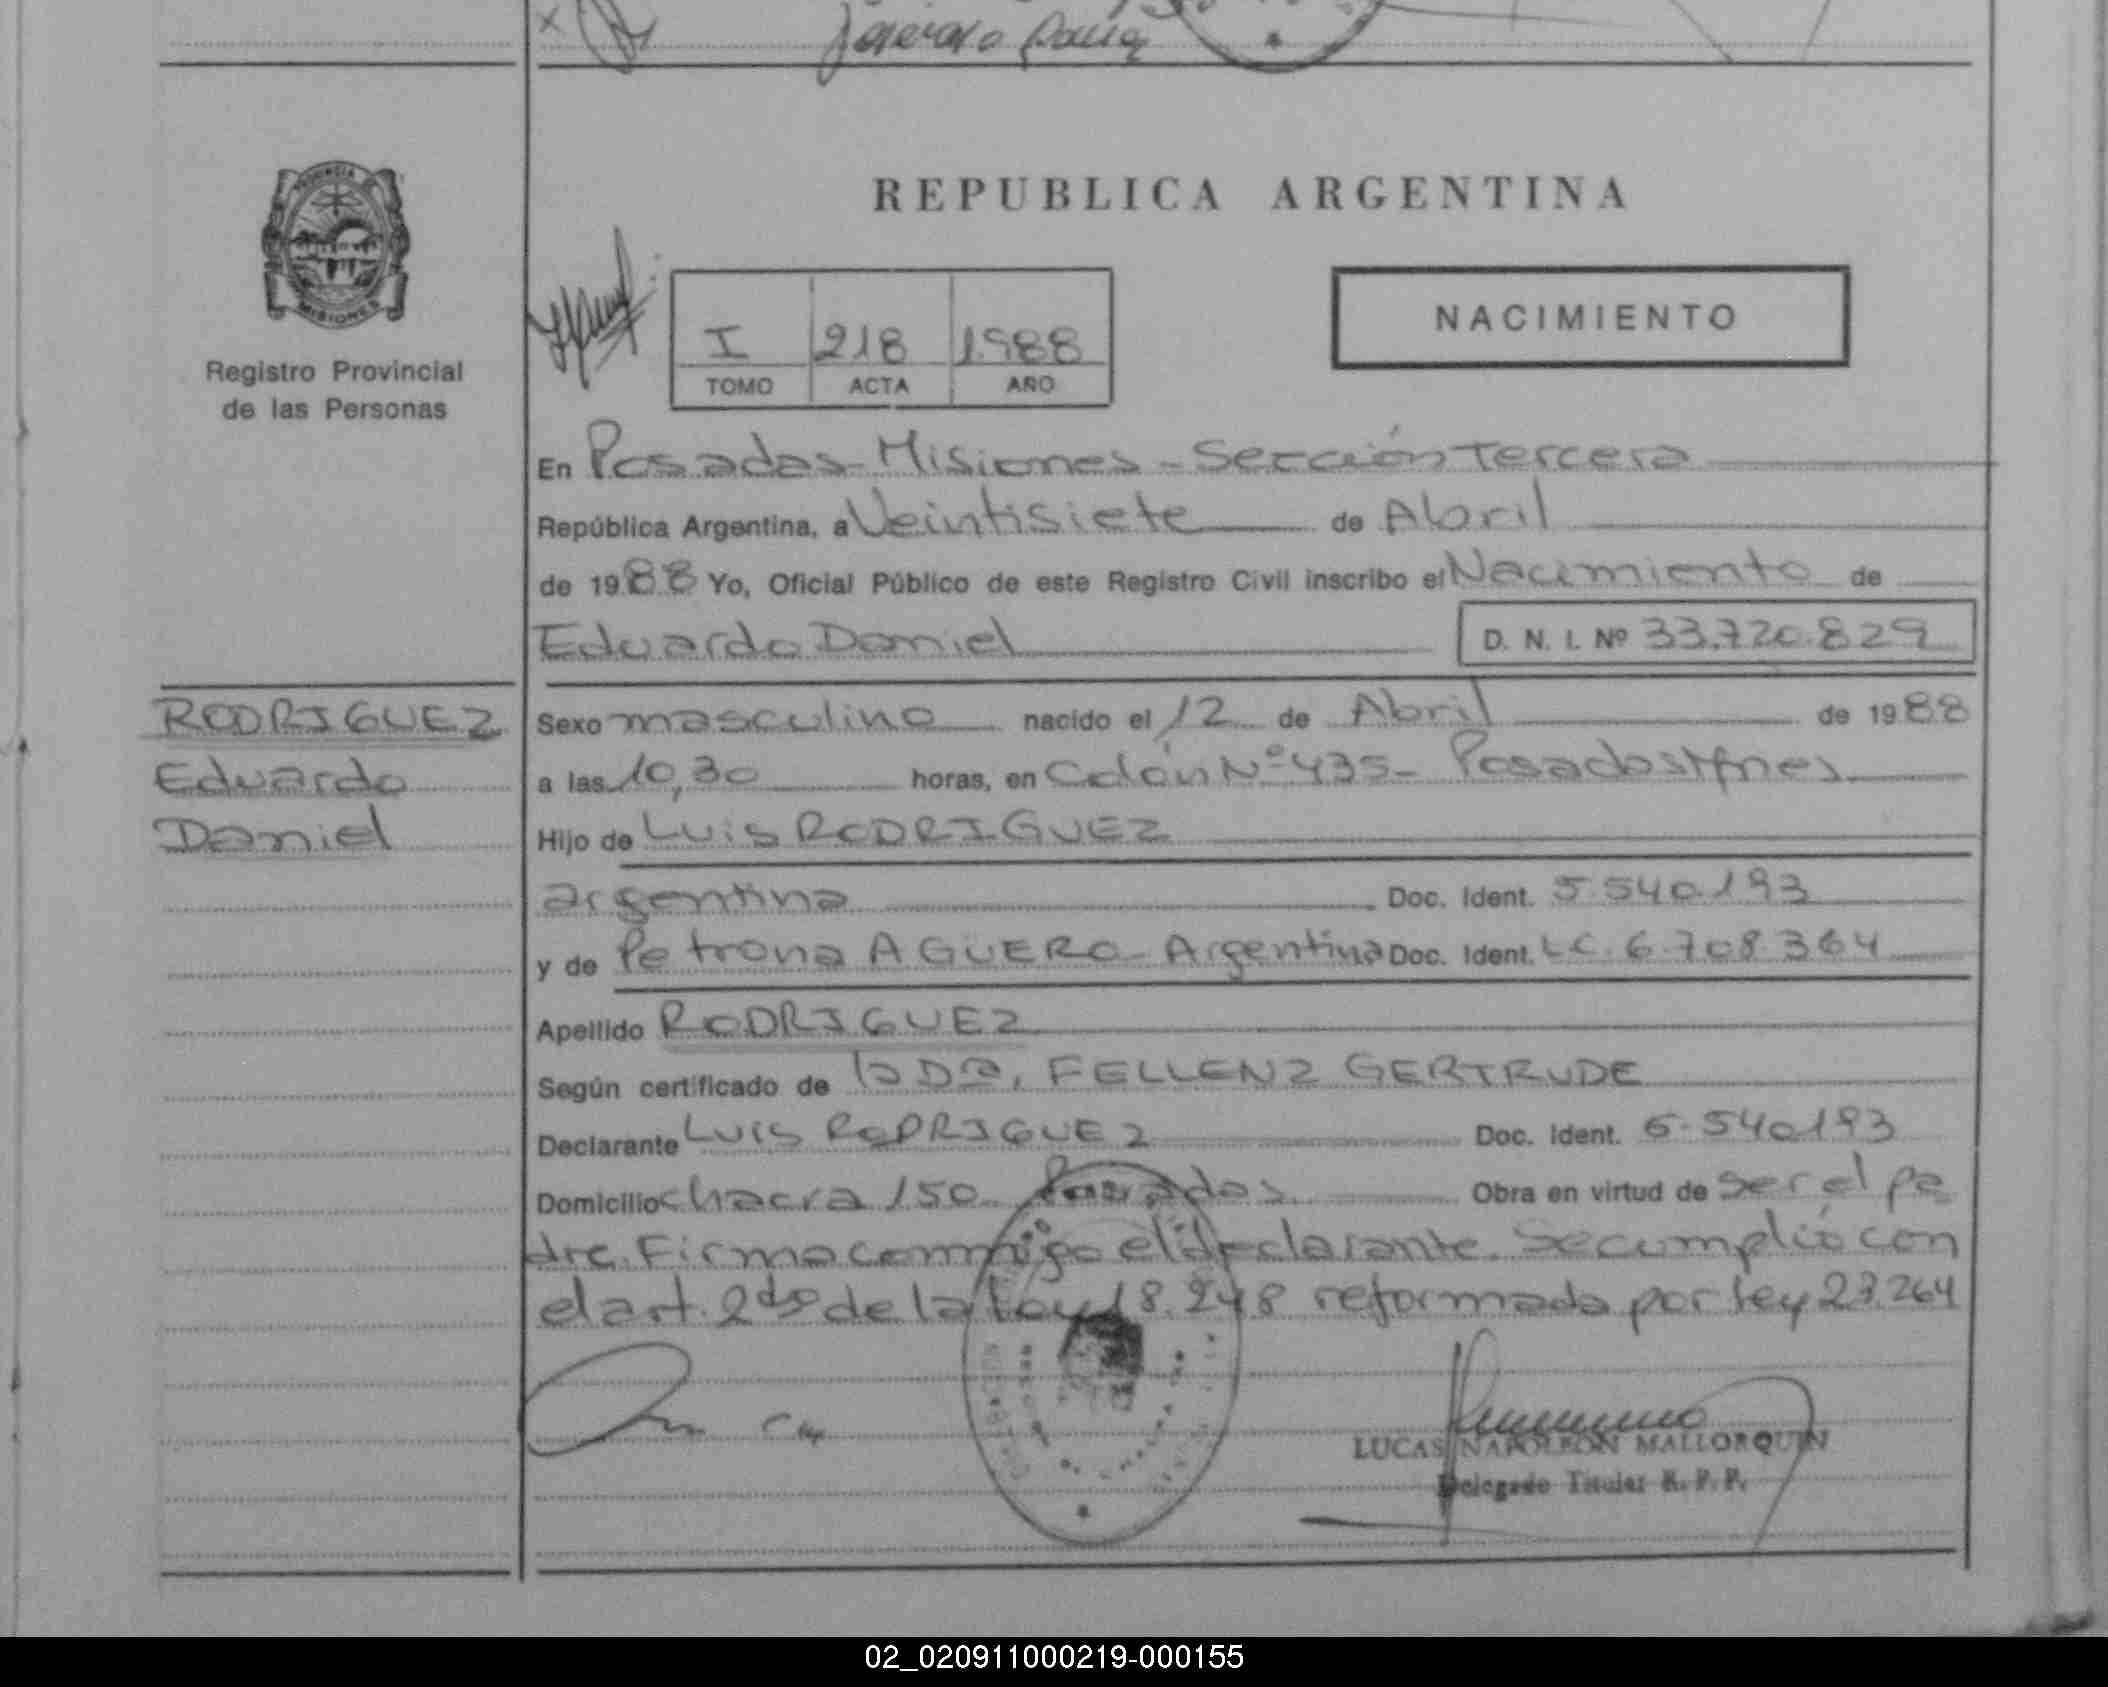 REPUBLICA ARGENTINA
PROVINCIA DE
MISIONES
Registro Provincial
de las Personas
I 218 1.988
TOMO ACTA AÑO
NACIMIENTO
En Posadas - Misiones - Sección Tercera
República Argentina, a Veintisiete de Abril
de 1988 Yo, Oficial Público de este Registro Civil inscribo el Nacimiento de
Eduardo Daniel D. N. I. Nº 33.720.829
RODRIGUEZ
Eduardo
Daniel
Sexo masculino nacido el 12 de Abril de 1988
a las 10,30 horas, en Colón Nº 435 - Posadas Mnes
Hijo de Luis RODRIGUEZ
argentina Doc. Ident. 5.540.193
y de Petrona AGÜERO - Argentina Doc. Ident. LC. 6.708.364
Apellido RODRIGUEZ
Según certificado de la Dra. FELLENZ GERTRUDE
Declarante LUIS RODRIGUEZ Doc. Ident. 5.540193
Domicilio chacra 150 Posadas Obra en virtud de ser el pa
dre. Firma conmigo el declarante. Se cumplió con
el art. 2do de la Ley 18.248 reformada por ley 23.264
LUCAS NAPOLEON MALLORQUIN
Delegado Titular R. P. P.
02_020911000219-000155